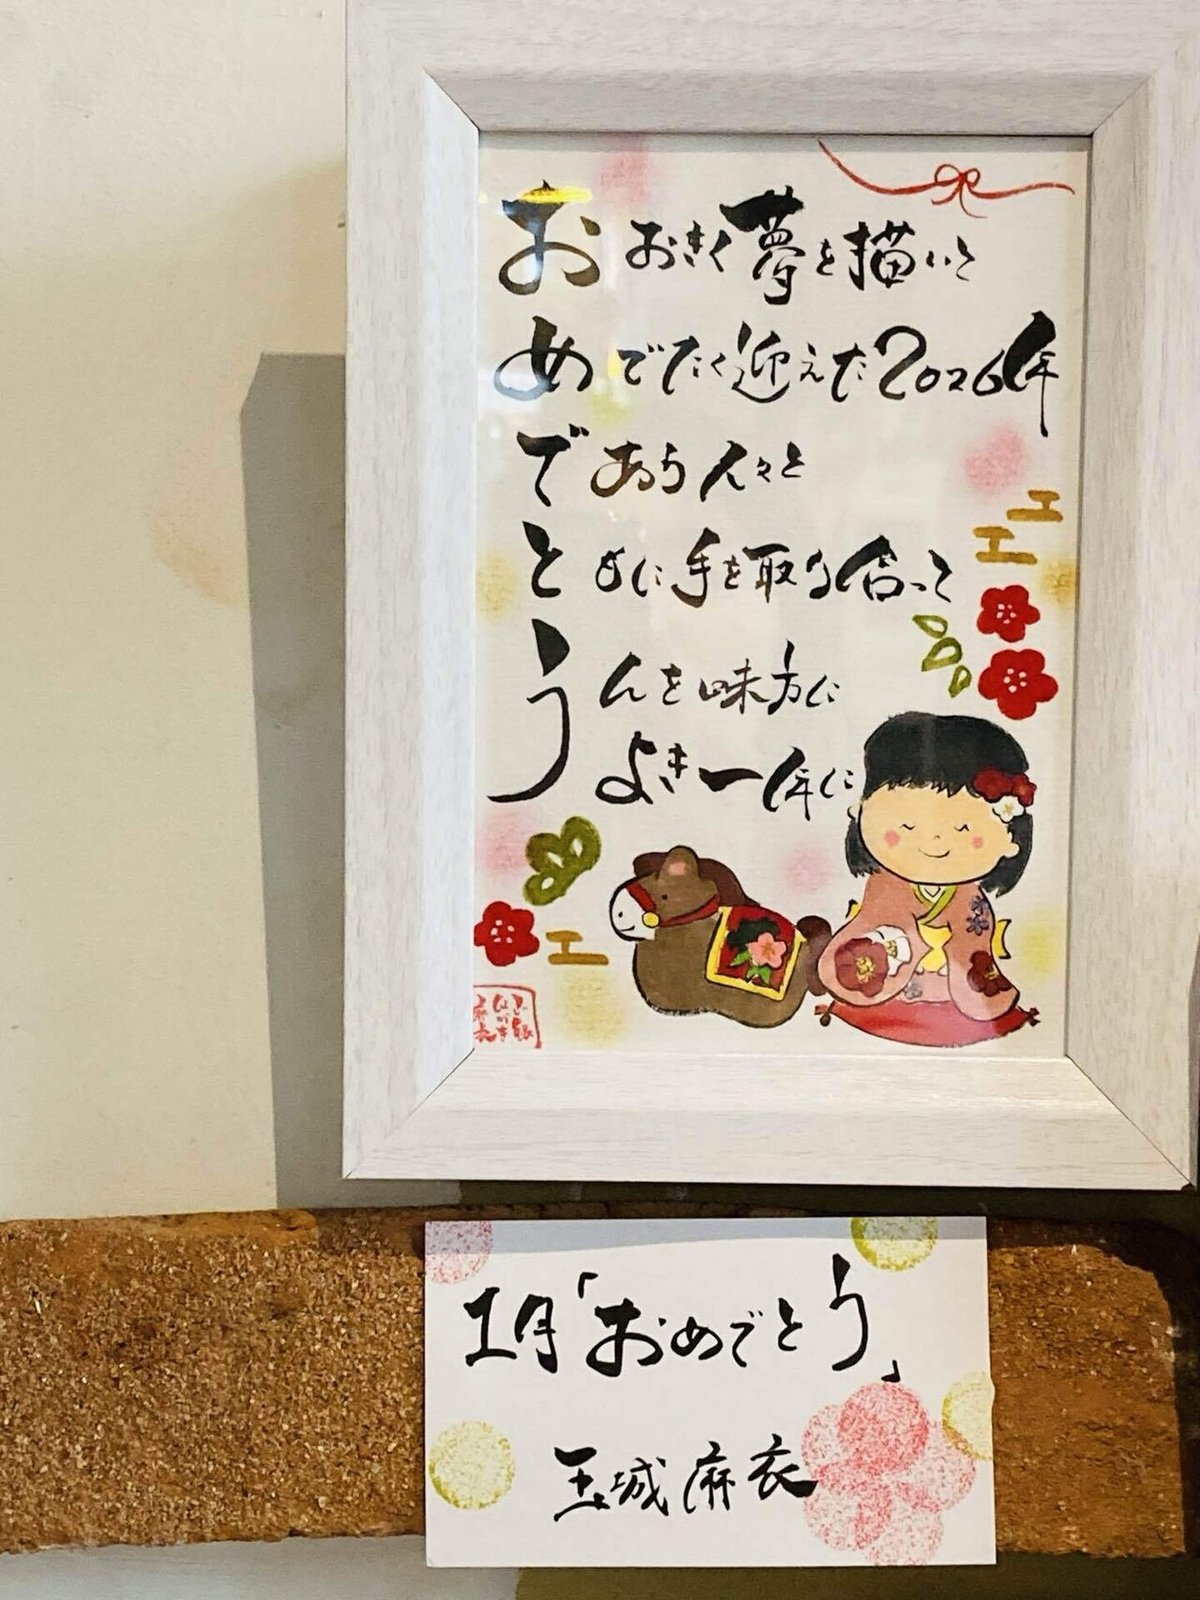 おおきく夢を描いて
めでたく迎えた2026年
であう人々と
ともに手を取り合って
うんを味方に
よき一年に
1月「おめでとう」
玉城麻衣